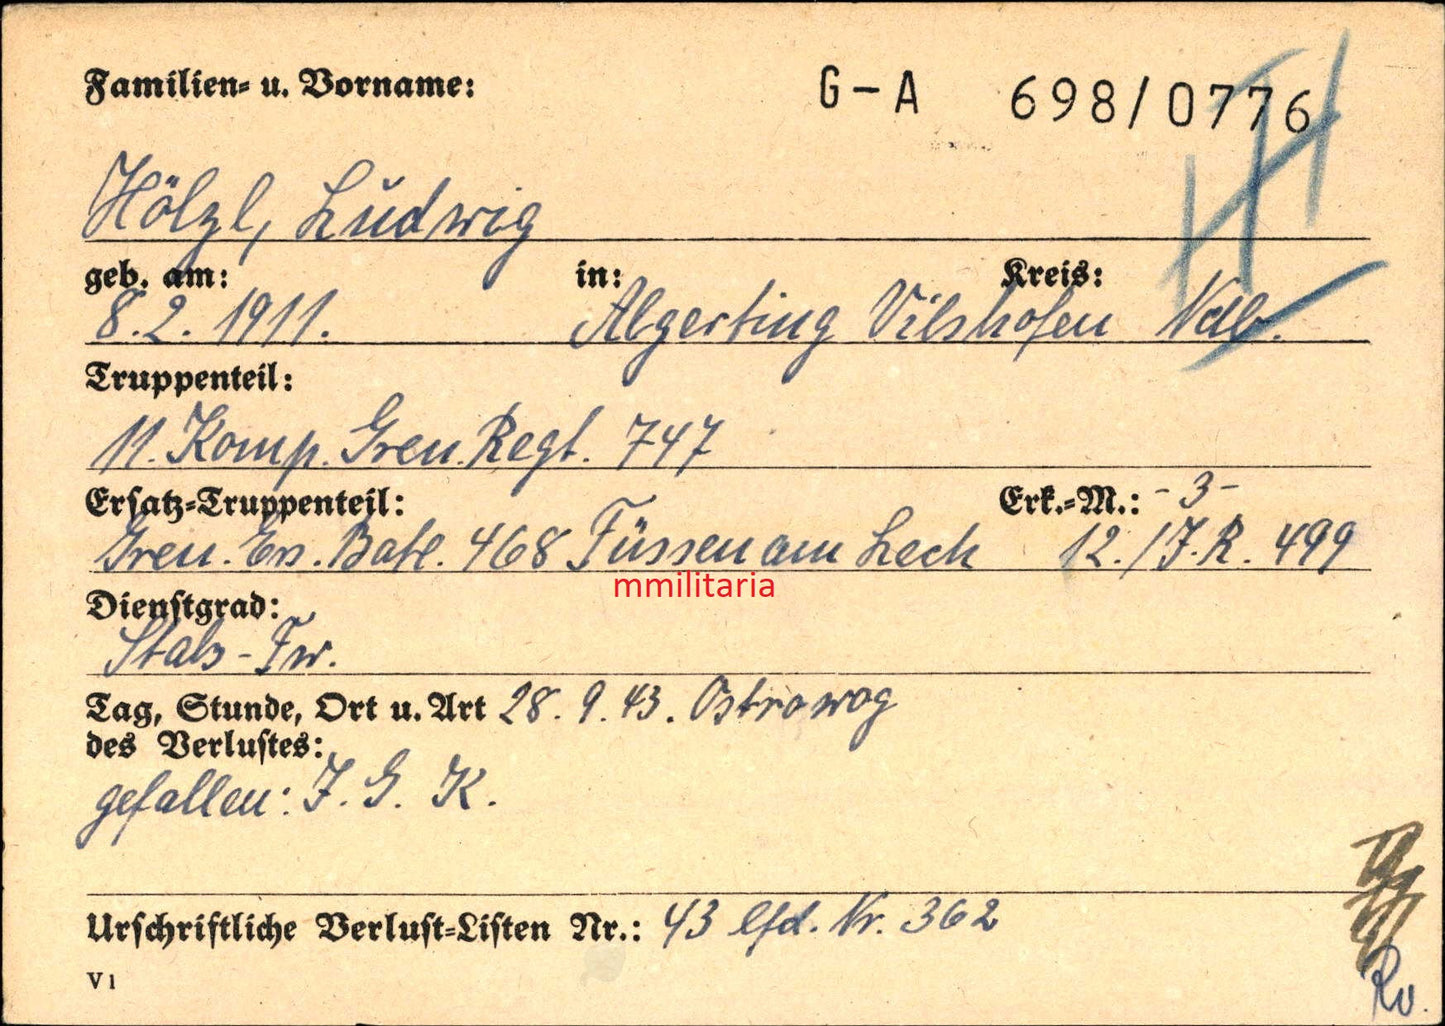 Familien- u. Vorname: G-A 698/0776
Hölzl, Ludwig
geb. am: in: Kreis:
8.2.1911. Algerting Vilshofen Ndb.
Truppenteil:
11. Komp. Gren. Regt. 747
Ersatz-Truppenteil: Erk.-M.: -3-
Gren. Ers. Batl. 468 Füssen am Lech 12./J.R. 499
mmilitaria
Dienstgrad:
Stabs-Fw.
Tag, Stunde, Ort u. Art 28.9.43. Ostrowog
des Verlustes:
gefallen: J. G. K.
Urschriftliche Verlust-Listen Nr.: 43 lfd. Nr. 362
V1
Rv.